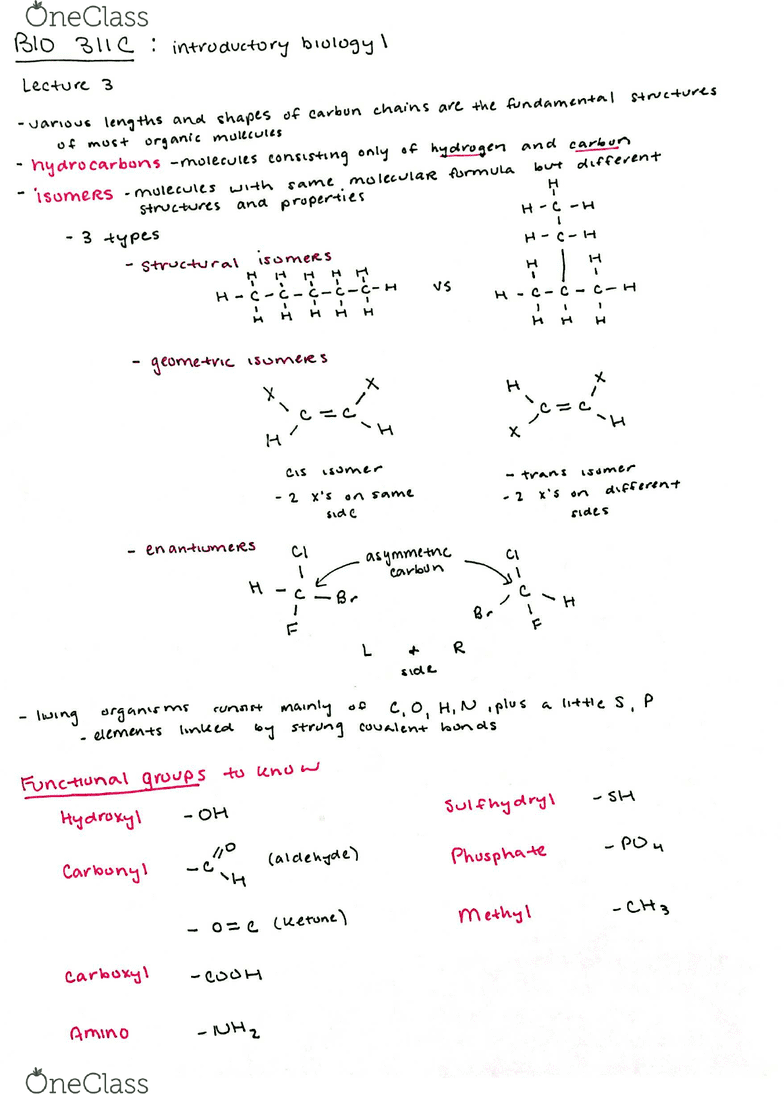 OneClass
BIO 311C : introductory biology 1
Lecture 3
- various lengths and shapes of carbon chains are the fundamental structures
of most organic molecules
- hydrocarbons - molecules consisting only of hydrogen and carbon
- isomers - molecules with same molecular formula but different
structures and properties
- 3 types
- structural isomers
H
H - C - H
H - C - H
H H H H H
H H
H - C - C - C - C - C - H vs H - C - C - C - H
H H H H H
H H H
- geometric isomers
X X H X
C = C C = C
H H X H
cis isomer - trans isomer
- 2 x's on same - 2 x's on different
side sides
- enantiomers Cl asymmetric carbon Cl
H - C - Br C H
F Br F
L + R
side
- living organisms consist mainly of C, O, H, N, plus a little S, P
- elements linked by strong covalent bonds
Functional groups to know
Hydroxyl - OH
Carbonyl - C O H (aldehyde)
- O=C (ketone)
Carboxyl - COOH
Amino - NH2
Sulfhydryl - SH
Phosphate - PO4
Methyl - CH3
OneClass